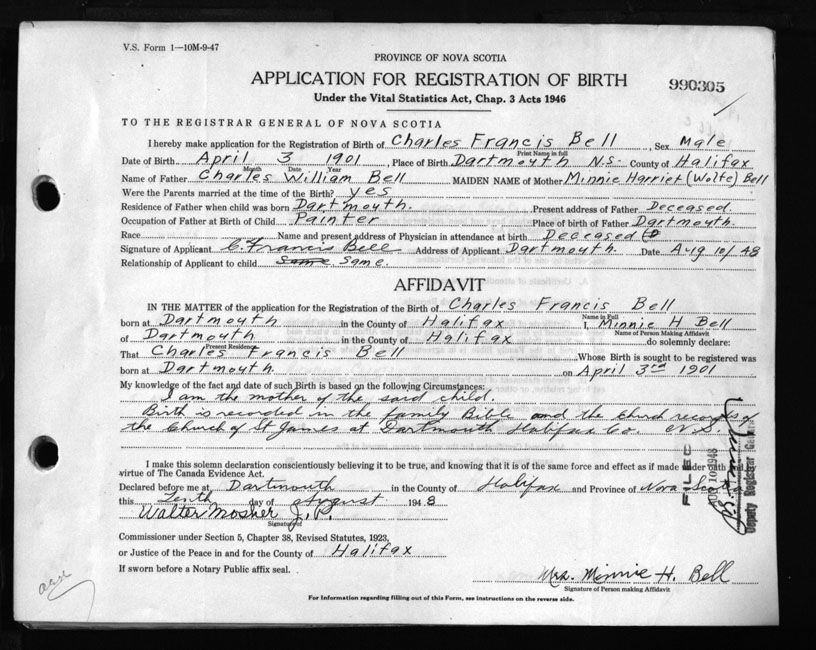 V.S. Form 1—10M-9-47
PROVINCE OF NOVA SCOTIA
APPLICATION FOR REGISTRATION OF BIRTH
990305
Under the Vital Statistics Act, Chap. 3 Acts 1946
TO THE REGISTRAR GENERAL OF NOVA SCOTIA
I hereby make application for the Registration of Birth of Charles Francis Bell, Sex Male
Print Name in full
Date of Birth April 3 1901, Place of Birth Dartmouth N.S. County of Halifax
Month Date Year
Name of Father Charles William Bell MAIDEN NAME of Mother Minnie Harriet (Wolfe) Bell
Were the Parents married at the time of the Birth? yes
Residence of Father when child was born Dartmouth. Present address of Father Deceased.
Occupation of Father at Birth of Child Painter Place of birth of Father Dartmouth.
Race Name and present address of Physician in attendance at birth Deceased
Signature of Applicant C. Francis Bell Address of Applicant Dartmouth Date Aug 10/48
Relationship of Applicant to child Same. Same.
AFFIDAVIT
IN THE MATTER of the application for the Registration of the Birth of Charles Francis Bell
Name in Full
born at Dartmouth in the County of Halifax I, Minnie H Bell
Name of Person Making Affidavit
of Dartmouth in the County of Halifax do solemnly declare:
Present Residence
That Charles Francis Bell Whose Birth is sought to be registered was
born at Dartmouth on April 3rd 1901
My knowledge of the fact and date of such Birth is based on the following Circumstances:
I am the mother of the said child.
Birth is recorded in the family Bible and the Church records of
the Church of St James at Dartmouth Halifax Co. N.S.
I make this solemn declaration conscientiously believing it to be true, and knowing that it is of the same force and effect as if made under oath and by
virtue of The Canada Evidence Act.
Declared before me at Dartmouth in the County of Halifax and Province of Nova Scotia
this Tenth day of August 1948
Walter Mosher J.P.
Signature of
Commissioner under Section 5, Chapter 38, Revised Statutes, 1923,
or Justice of the Peace in and for the County of Halifax
If sworn before a Notary Public affix seal.
Mrs. Minnie H. Bell
Signature of Person making Affidavit
For Information regarding filling out of this Form, see instructions on the reverse side.
FILED
AUG 10 1948
Deputy Registrar General